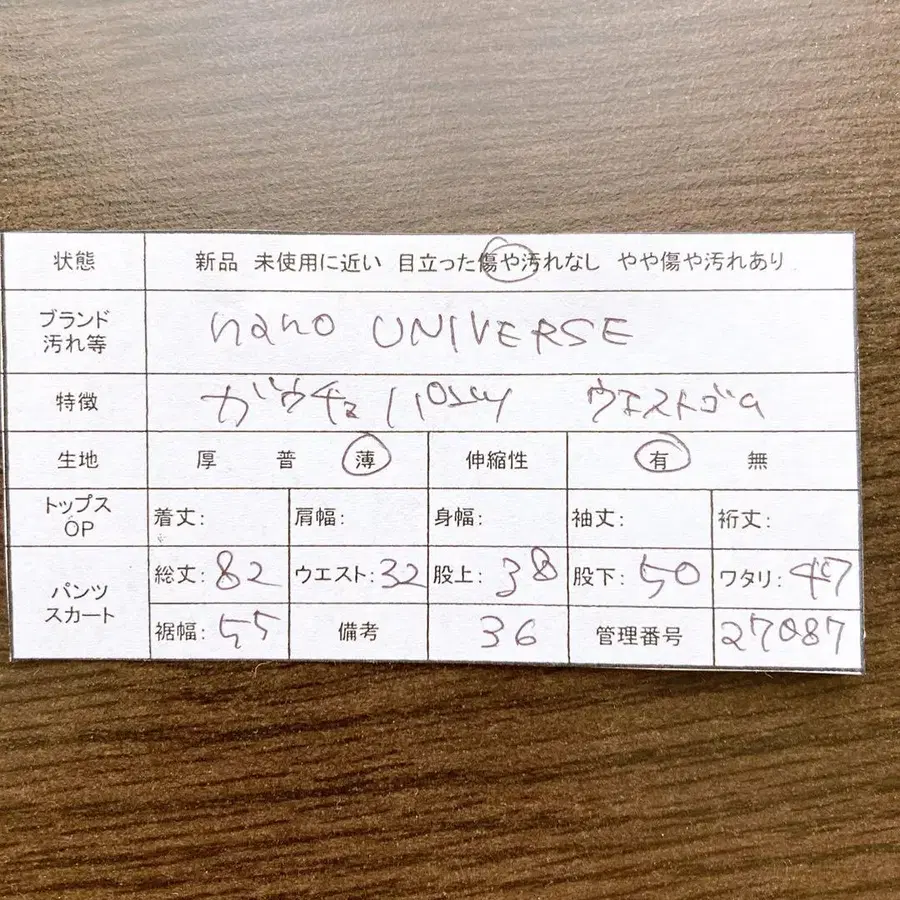 状態 新品 未使用に近い 目立った傷や汚れなし やや傷や汚れあり
ブランド
汚れ等 nano UNIVERSE
特徴 ガウチョパンツ ウエストゴム
生地 厚 普 薄 伸縮性 有 無
トップス
OP 着丈: 肩幅: 身幅: 袖丈: 裄丈:
パンツ
スカート 総丈: 82 ウエスト: 32 股上: 38 股下: 50 ワタリ: 47
裾幅: 55 備考 36 管理番号 27087